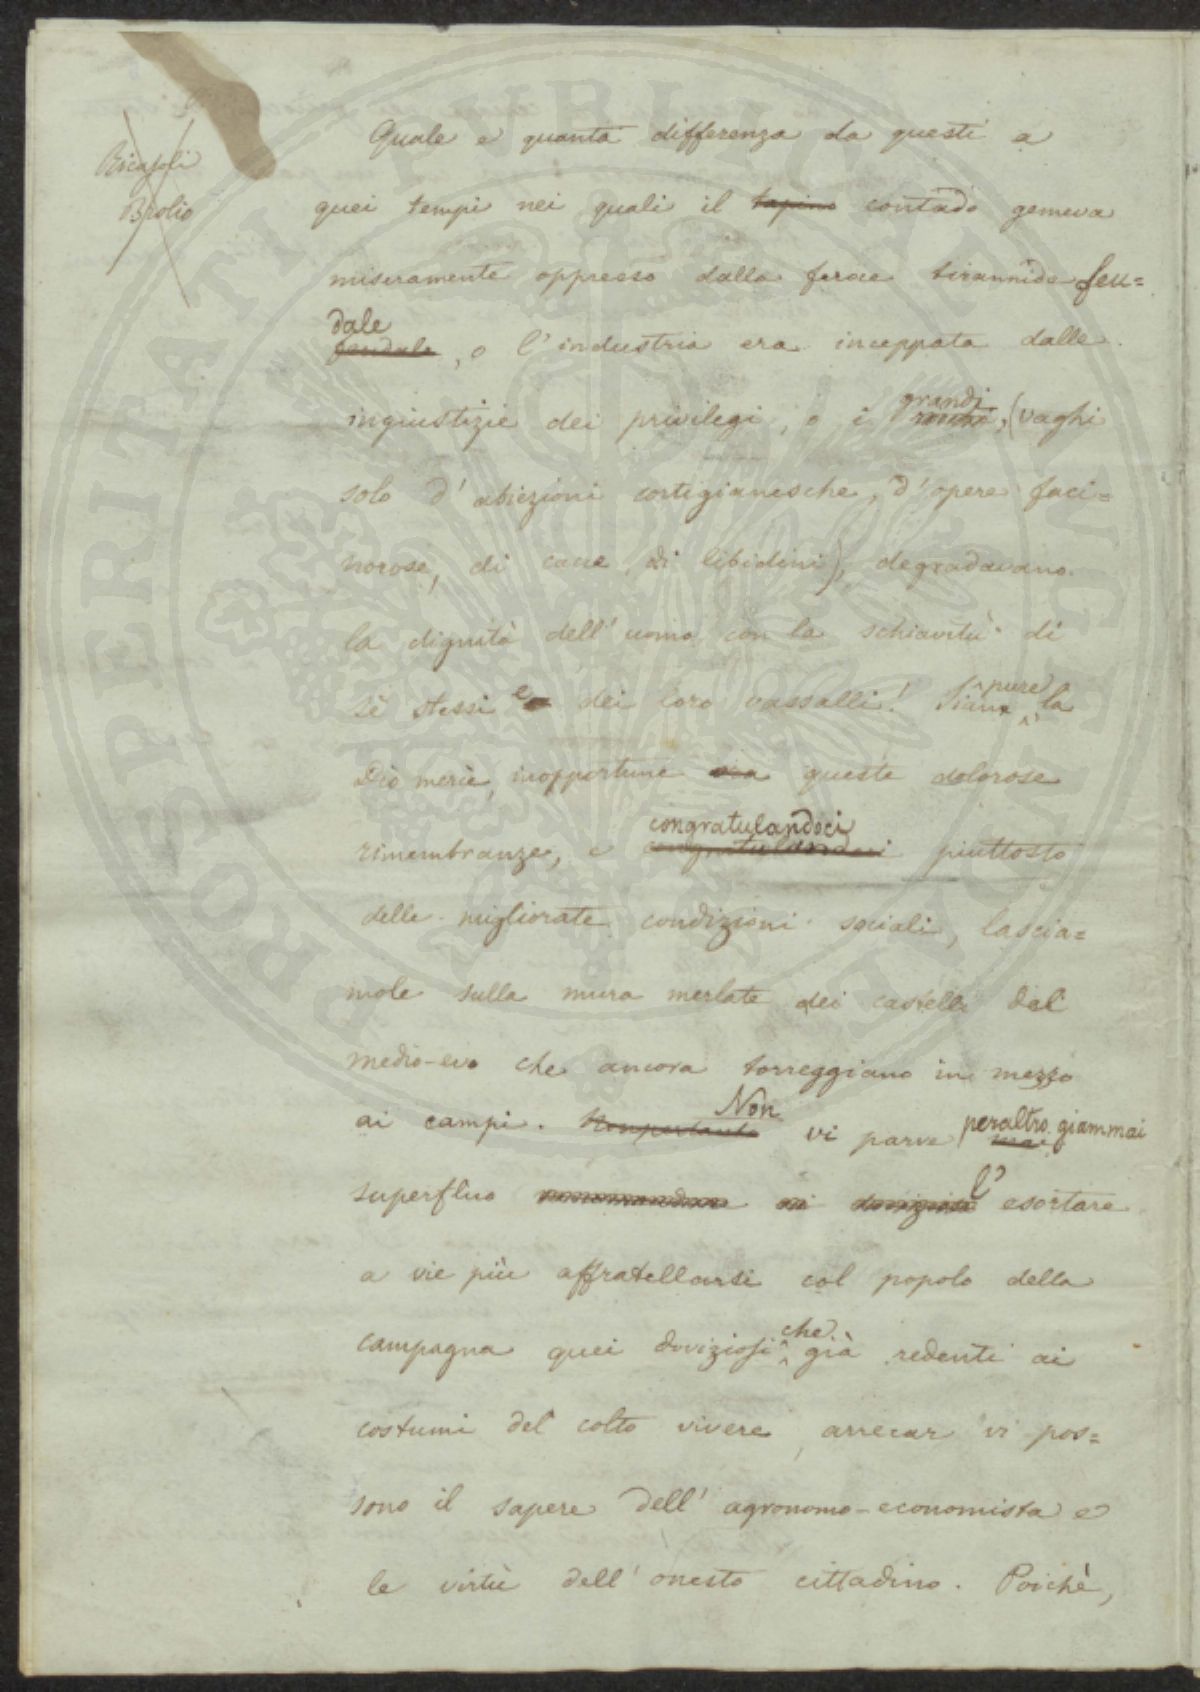 Ricasoli
Brolio
Quale e quanta differenza da questi a
quei tempi nei quali il tapino contado gemeva
miseramente oppresso dalla feroce tirannide feu=
dale
feudale, e l'industria era inceppata dalle
grandi
ingiustizie dei privilegi, e i ricchi, (vaghi
solo d'abiezioni cortigianesche, d'opere faci=
norose, di cacce, di libidini), degradavano
la dignità dell'uomo con la schiavitù di
sè stessi e dei loro vassalli! Siano pure la
Dio mercè, inopportune queste dolorose
congratulandoci
rimembranze, e congratulandoci piuttosto
delle migliorate condizioni sociali, lascia=
mole sulle mura merlate dei castelli del
medio-evo che ancora torreggiano in mezzo
ai campi. Nonpertanto Non vi parve peraltro giammai
mai
superfluo raccomandare ai doviziosi l'esortare
a vie più affratellarsi col popolo della
campagna quei doviziosi che già redenti ai
costumi del colto vivere, arrecar vi pos=
sono il sapere dell'agronomo-economista e
le virtù dell'onesto cittadino. Poichè,
PROSPERITATI PUBLICAE AUGENDAE